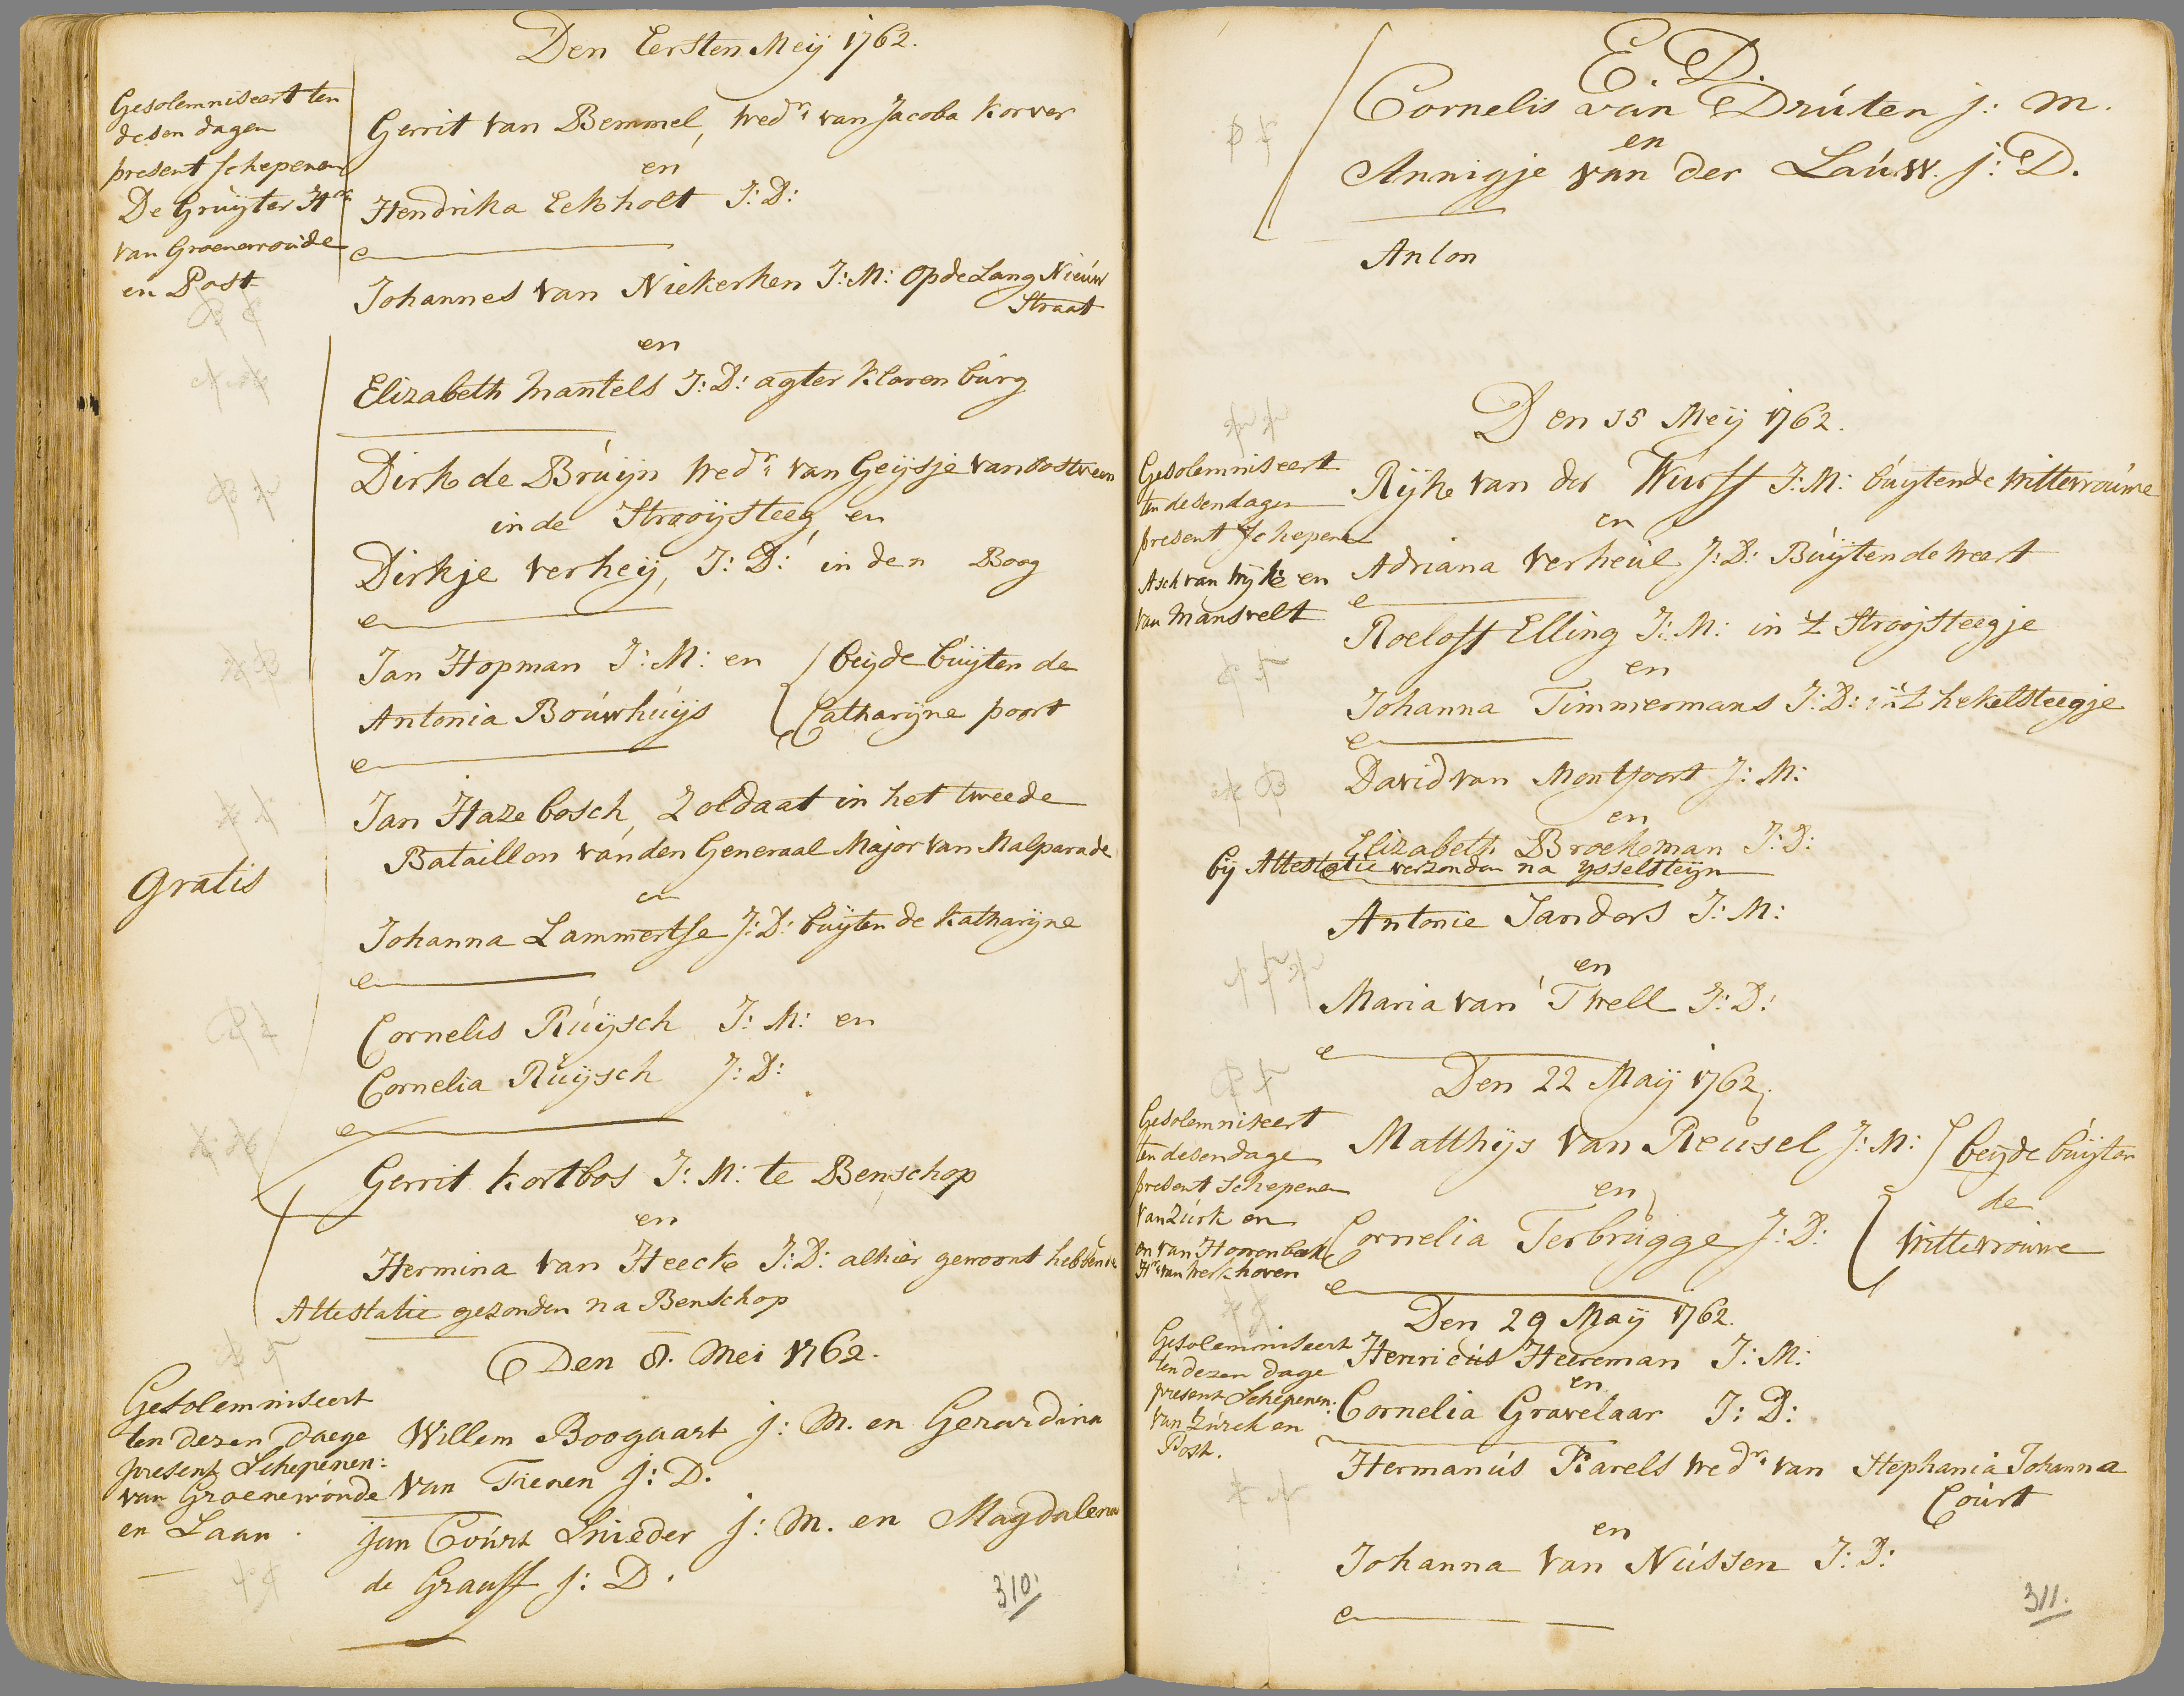 Den Eersten Meij 1762.
Gesolemniseert ten
desen dagen
present schepenen
De Gruijter Hr.
van Groenewoude
en Post
Gerrit van Bemmel, Wedr. van Jacoba Korver
en
Hendrika Eekholt J: D:
Johannes van Niekerken J: M: op de Lang Nieuw
Straat
en
Elizabeth Mantels J: D: agter Klarenburg
Dirk de Bruijn Wedr. van Geijsje van Oostveen
in de Strooijsteeg, en
Dirkje Verheij, J: D: in den Boog
Jan Hopman J: M: en beijde buijten de
Antonia Bouwhuijs Catharijne poort
Jan Hazebosch, Zoldaat in het tweede
Bataillon van den Generaal Major van Malparade
gratis
en
Johanna Lammertse J: D: buijten de Katharijne
Cornelis Ruijsch J: M: en
Cornelia Ruijsch J: D:
Gerrit Kortbos J: M: te Benschop
en
Hermina van Heeck J: D: alhier gewoont hebbende
Attestatie gezonden na Benschop
Den 8. Mei 1762.
Gesolemniseert
ten dezen daege
present Schepenen:
van Groenewoude
en Laan.
Willem Boogaart j: M. en Gerardina
van Tienen j: D.
jan Court Snieder j: M. en Magdalena
de Grauff j: D.
310.
E. D.
Cornelis van Druten j: m.
en
Annigje van der Lauw. j: D.
Anlon
Den 15 Meij 1762.
Gesolemniseert
ten desen dagen
present schepene
Asch van Wijk en
van Mansvelt
Rijk van der Wurff J: M: buijten de Wittevrouwe
en
Adriana Verheul J: D: Buijten de Weert
Roeloff Elling J: M: in 't Strooijsteegje
en
Johanna Timmermans J: D: in 't hekelsteegje
David van Montfoort J: M:
en
Elizabeth Broekman J: D:
bij Attestatie verzonden na ysselsteijn
Antonie Sanders J: M:
en
Maria van Twell J: D:
Den 22 Maij 1762.
Gesolemniseert
ten desen dage
present schepenen
van Zurk en
en van Hoorenbeek
Hr. van Werkhoven
Matthijs van Reusel J: M: beijde buijten
en
de
Cornelia Terbrugge J: D:
Wittevrouwe
Den 29 Maij 1762.
Gesolemniseert
ten dezen dage
present Schepenen:
van Zurck en
Post.
Henricus Heereman J: M:
en
Cornelia Gravelaar J: D:
Hermanus Karels Wedr. van Stephania Johanna
Court
en
Johanna van Nussen J: D:
311.